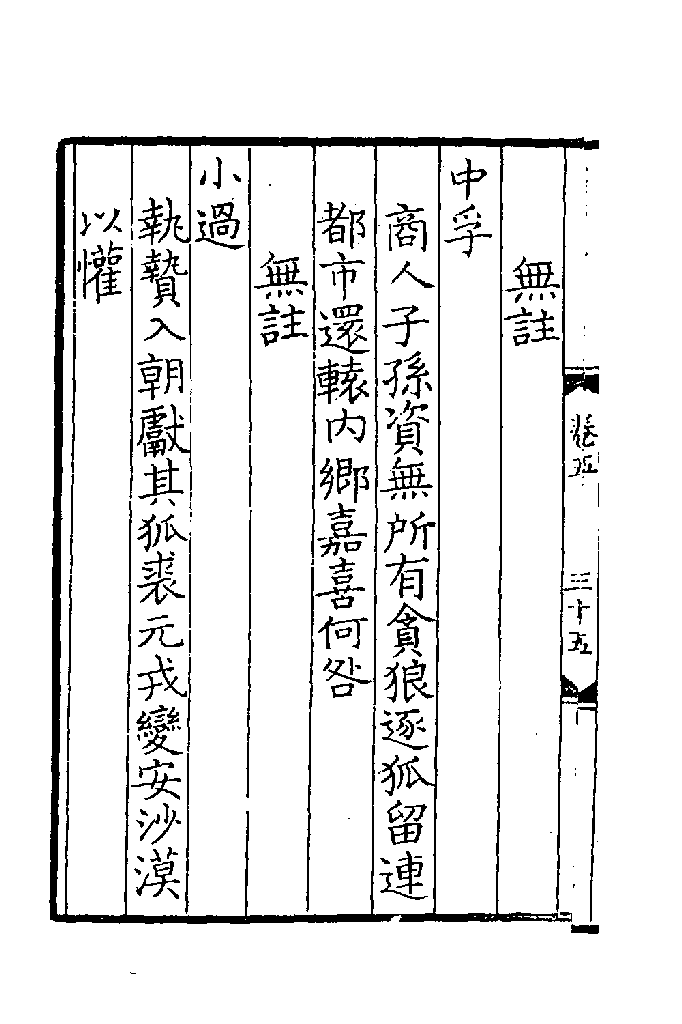 卷五
三十五
無註
中孚
商人子孫資無所有貪狼逐狐留連
都市還轅内鄉嘉喜何咎
無註
小過
執贄入朝獻其狐裘元戎變安沙漠
以懽